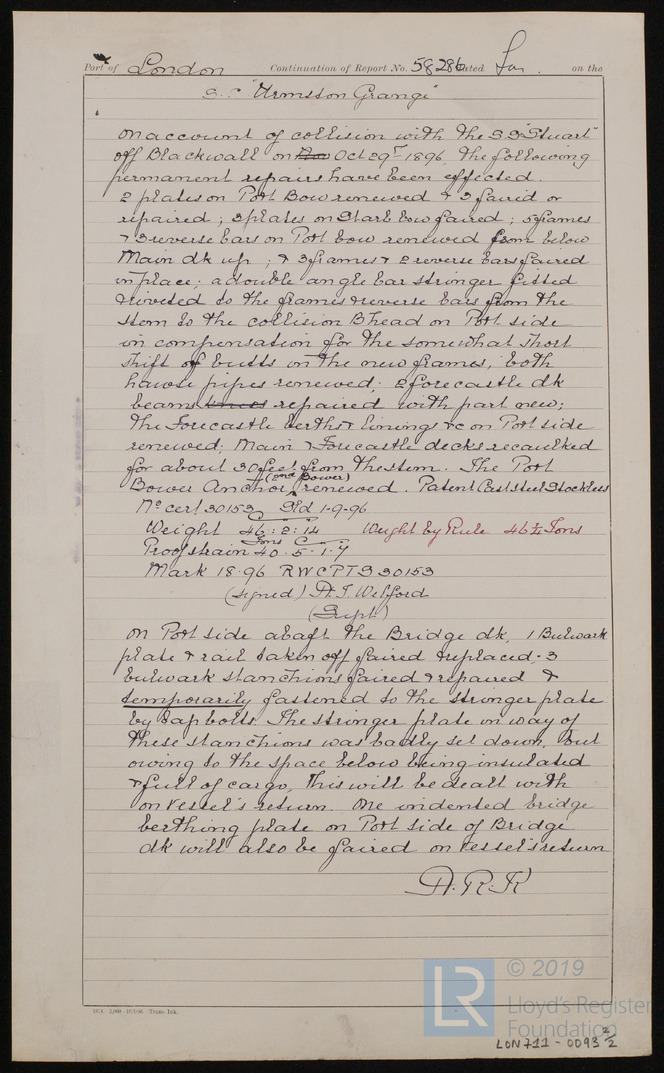 Port of London Continuation of Report No. 58286 dated on the
S.S. "Urmston Grange"
On account of collision with the S.S. "Stuart"
off Blackwall on Oct 29th 1896, the following
permanent repairs have been effected.
2 plates on Port Bow renewed & 3 faired or
repaired; 3 plates on Starb bow faired; 5 frames
& 3 reverse bars on Port bow renewed from below
Main dk up; & 3 frames & 2 reverse bars faired
in place; a double angle bar stringer fitted
& riveted to the frames & reverse bars from the
stem to the collision Bhead on Port side
in compensation for the somewhat short
shift of butts in the new frames; both
hawse pipes renewed; 2 forecastle dk
beams repaired with part new;
the Forecastle berths & lining &c on Port side
renewed; Main & Forecastle decks recaulked
for about 30 feet from the stem. The Port
(one Bower)
Bower Anchor, renewed. Patent Cast Steel Stockless
No cert 30153 Dtd 1-9-96
Weight 46:2:14 Weight by Rule 46¼ Tons
Tons C
Proof strain 40.5.1.7
Mark 18.96 RWCPTS 30153
(signed) A.T. Welford
(Supt)
On Port side abaft the Bridge dk, 1 Bulwark
plate & rail taken off faired & replaced. 3
bulwark stanchions faired & repaired &
temporarily fastened to the stringer plate
by tap bolts. The stringer plate in way of
these stanchions was badly set down, but
owing to the space below being insulated
& full of cargo, this will be dealt with
on vessel's return. One indented bridge
berthing plate on Port side of Bridge
dk will also be faired on vessel's return
A.R.K
LR © 2019
Lloyd's Register
Foundation
LON711-0093 2/2